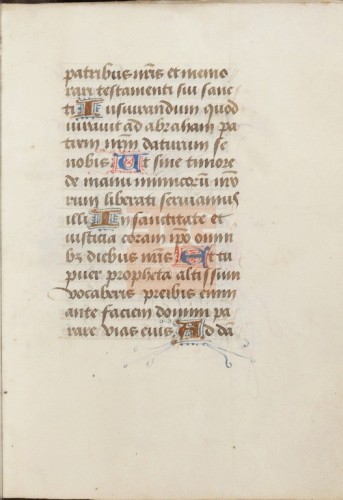 patribus nr̃is et memo
rari testamenti sui sanc
ti Iusiurandum quod
iuravit ad abraham pa
trem nr̃m daturum se
nobis Ut sine timore
de manu inimicorũ nr̃o
rum liberati serviamus
illi In sanctitate et
iusticia coram ip̃o omni
bꝫ diebus nr̃is Et tu
puer propheta altissimi
vocaberis preibis enim
ante faciem domini pa
rare vias eius Ad dã